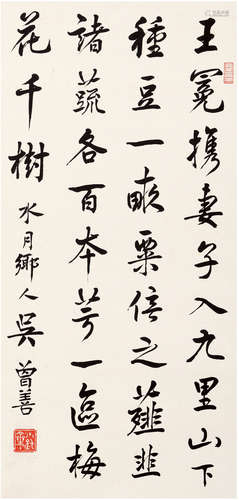 王冕携妻子入九里山下
種豆一畝粟倍之薤韭
諸蔬各百本芋一區梅
花千樹 水月鄉人吳曾善